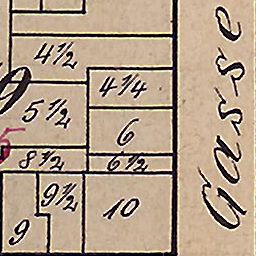 4½
4¼
5½
6
8½
6½
9½
10
9
Gasse